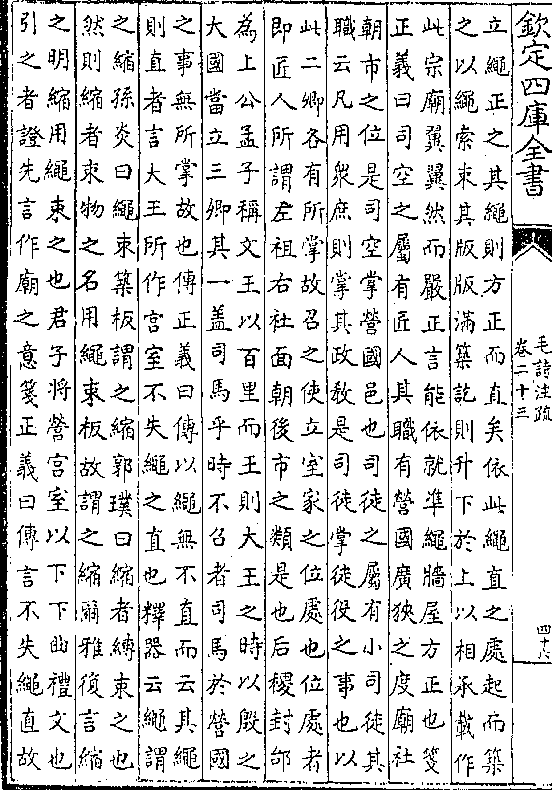 欽定四庫全書
毛詩注疏
卷二十三
四十六
立繩正之其繩則方正而直矣依此繩直之處起而築
之以繩索束其版版滿築訖則升下於上以相承載作
此宗廟翼翼然而嚴正言能依就準繩牆屋方正也箋
正義曰司空之屬有匠人其職有營國廣狹之度廟社
朝市之位是司空掌營國邑也司徒之屬有小司徒其
職云凡用衆庶則掌其政教是司徒掌徒役之事也以
此二卿各有所掌故召之使立室家之位處也位處者
即匠人所謂左祖右社面朝後市之類是也后稷封邰
為上公孟子稱文王以百里而王則大王之時以殷之
大國當立三卿其一蓋司馬乎時不召者司馬於營國
之事無所掌故也傳正義曰傳以繩無不直而云其繩
則直者言大王所作宮室不失繩之直也釋器云繩謂
之縮孫炎曰繩束築板謂之縮郭璞曰縮者縛束之也
然則縮者束物之名用繩束板故謂之縮爾雅復言縮
之明縮用繩束之也君子將營宮室以下下曲禮文也
引之者證先言作廟之意箋正義曰傳言不失繩直故